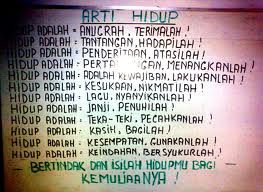 ARTI HIDUP
HIDUP ADALAH = ANUGRAH, TERIMALAH!
HIDUP ADALAH = TANTANGAN, HADAPILAH!
HIDUP ADALAH = PENDERITAAN, ATASILAH!
HIDUP ADALAH = MENANGKANLAH!
HIDUP ADALAH = ADALAH KEWAJIBAN, LAKUKANLAH!
HIDUP ADALAH = KESUKAAN, NIKMATILAH!
HIDUP ADALAH = LAGU, NYANYIKANLAH!
HIDUP ADALAH = JANJI, PENUHILAH!
HIDUP ADALAH = TEKA-TEKI, PECAHKANLAH!
HIDUP ADALAH = KASIH, BAGILAH!
HIDUP ADALAH = KESEMPATAN, GUNAKANLAH!
HIDUP ADALAH = KEINDAHAN, BERSYUKURLAH!
BERTINDAK DAN ISILAH HIDUPMU BAGI
KEMULIAANNYA!